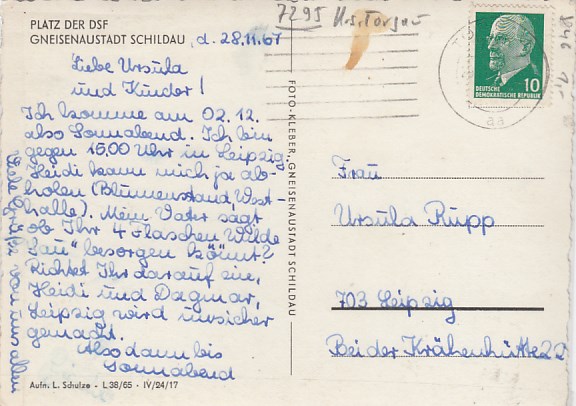 PLATZ DER DSF
GNEISENAUSTADT SCHILDAU, d. 28.11.67
Liebe Ursula
und Kinder!
Ich komme am 02.12.
also Sonnabend. Ich bin
gegen 15.00 Uhr in Leipzig,
Heidi kann mich ja ab-
holen (Blumenstand, West-
halle). Mein Vater sagt
ob Ihr 4 Flaschen "Wilde
Sau" besorgen könnt?
Richtet Ihr darauf ein,
Heidi und Dagmar,
Leipzig wird unsicher
gemacht.
Also dann bis
Sonnabend
Liebe Grüße von uns allen
Aufn. L. Schulze - L 38/65 - IV/24/17
FOTO-KLEBER, GNEISENAUSTADT SCHILDAU
7295 Krs. Torgau
DEUTSCHE
DEMOKRATISCHE REPUBLIK
10
Frau
Ursula Rupp
703 Leipzig
Bei der Krähenhütte 22